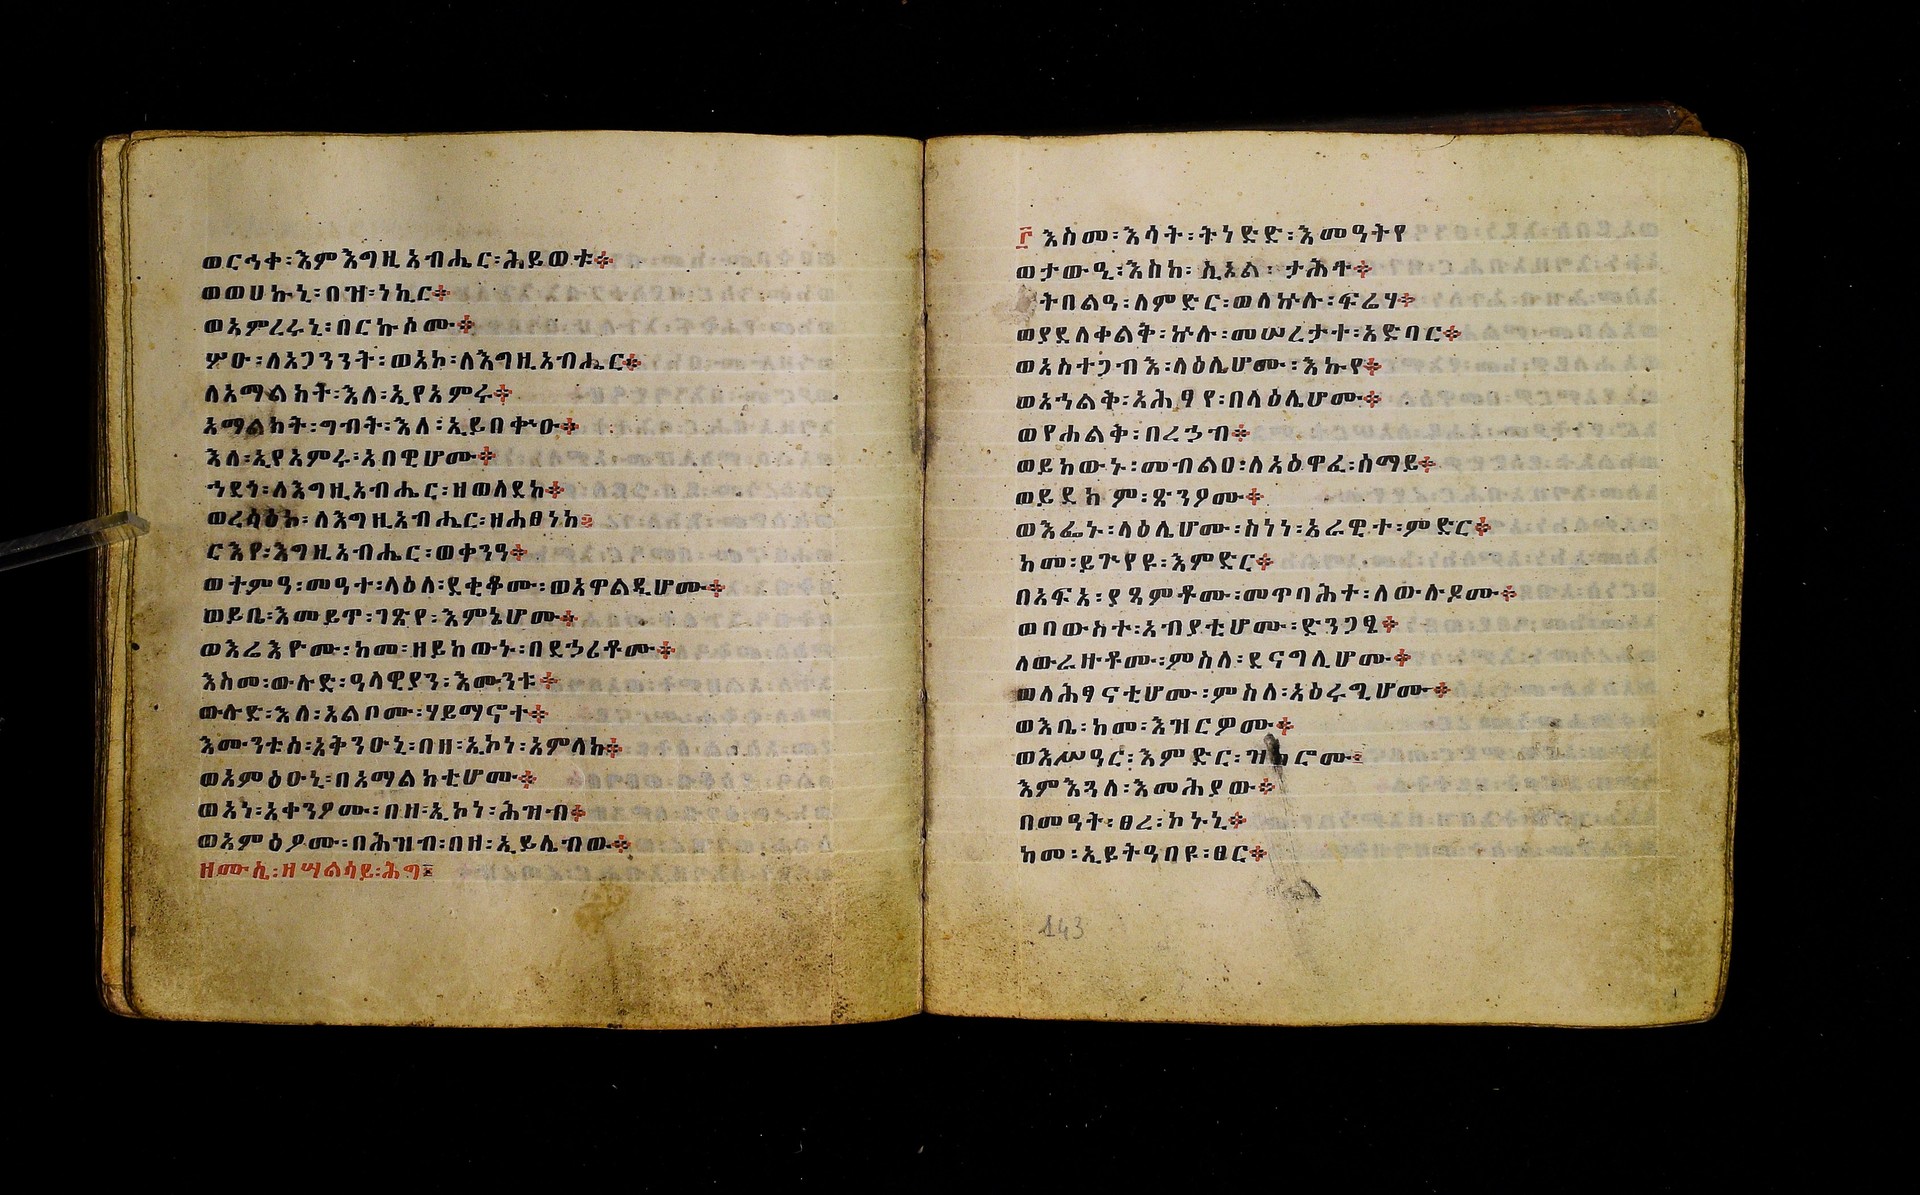 ወርኅቀ፡እምእግዚአብሔር፡ሕይወቱ፨
ወወሀኩኒ፡በዝ፡ነኪር፨
ወአምረሩኒ፡በርኩሶሙ፨
ሦዑ፡ለአጋንንት፡ወአኮ፡ለእግዚአብሔር፨
ለአማልክት፡እለ፡ኢየአምሩ፨
አማልክት፡ግብት፡እለ፡ኢይበቍዑ፨
እለ፡ኢየአምሩ፡አበዊሆሙ፨
ኀደጎ፡ለእግዚአብሔር፡ዘወለደከ፨
ወረሳዕኮ፡ለእግዚአብሔር፡ዘሐፀነከ፨
ርእየ፡እግዚአብሔር፡ወቀንዓ፨
ወተምዓ፡መዓተ፡ላዕለ፡ደቂቆሙ፡ወአዋልዲሆሙ፨
ወይቤ፡እመይጥ፡ገጽየ፡እምኔሆሙ፨
ወእሬእዮሙ፡ከመ፡ዘይከውኑ፡በደኃሪቶሙ፨
እስመ፡ውሉድ፡ዓላዊያን፡እሙንቱ፨
ውሉድ፡እለ፡አልቦሙ፡ሃይማኖተ፨
እሙንቱሰ፡አቅንዑኒ፡በዘ፡ኢኮነ፡አምላከ፨
ወአምዕዑኒ፡በአማልክቲሆሙ፨
ወአነ፡አቀንዖሙ፡በዘ፡ኢኮነ፡ሕዝብ፨
ወአምዕዖሙ፡በሕዝብ፡በዘ፡ኢይሌብው፨
ዘሙሴ፡ዘሣልሳይ፡ሕግ፨
፫ እስመ፡እሳት፡ትነድድ፡እመዓትየ
ወታውዒ፡እስከ፡ሲኦል፡ታሕተ፨
ትበልዓ፡ለምድር፡ወለኵሉ፡ፍሬሃ፨
ወያደለቀልቅ፡ኵሉ፡መሠረታተ፡አድባር፨
ወአስተጋብእ፡ላዕሌሆሙ፡እኩየ፨
ወአኀልቅ፡አሕፃየ፡በላዕሌሆሙ፨
ወየሐልቅ፡በረኃብ፨
ወይከውኑ፡መብልዐ፡ለአዕዋፈ፡ሰማይ፨
ወይደክም፡ጽንዖሙ፨
ወእፌኑ፡ላዕሌሆሙ፡ስነነ፡አራዊተ፡ምድር፨
ከመ፡ይጕየዩ፡እምድር፨
በአፍአ፡ያጼምቶሙ፡መጥባሕተ፡ለውሉዶሙ፨
ወበውስተ፡አብያቲሆሙ፡ድንጋፄ፨
ለውራዙቶሙ፡ምስለ፡ደናግሊሆሙ፨
ወለሕፃናቲሆሙ፡ምስለ፡አዕሩጊሆሙ፨
ወእቤ፡ከመ፡እዝርዎሙ፨
ወእሥዓር፡እምድር፡ዝክሮሙ፨
እምእጓለ፡እመሕያው፨
በመዓት፡ፀረ፡ኮኑኒ፨
ከመ፡ኢይትዓበዩ፡ፀር፨
143